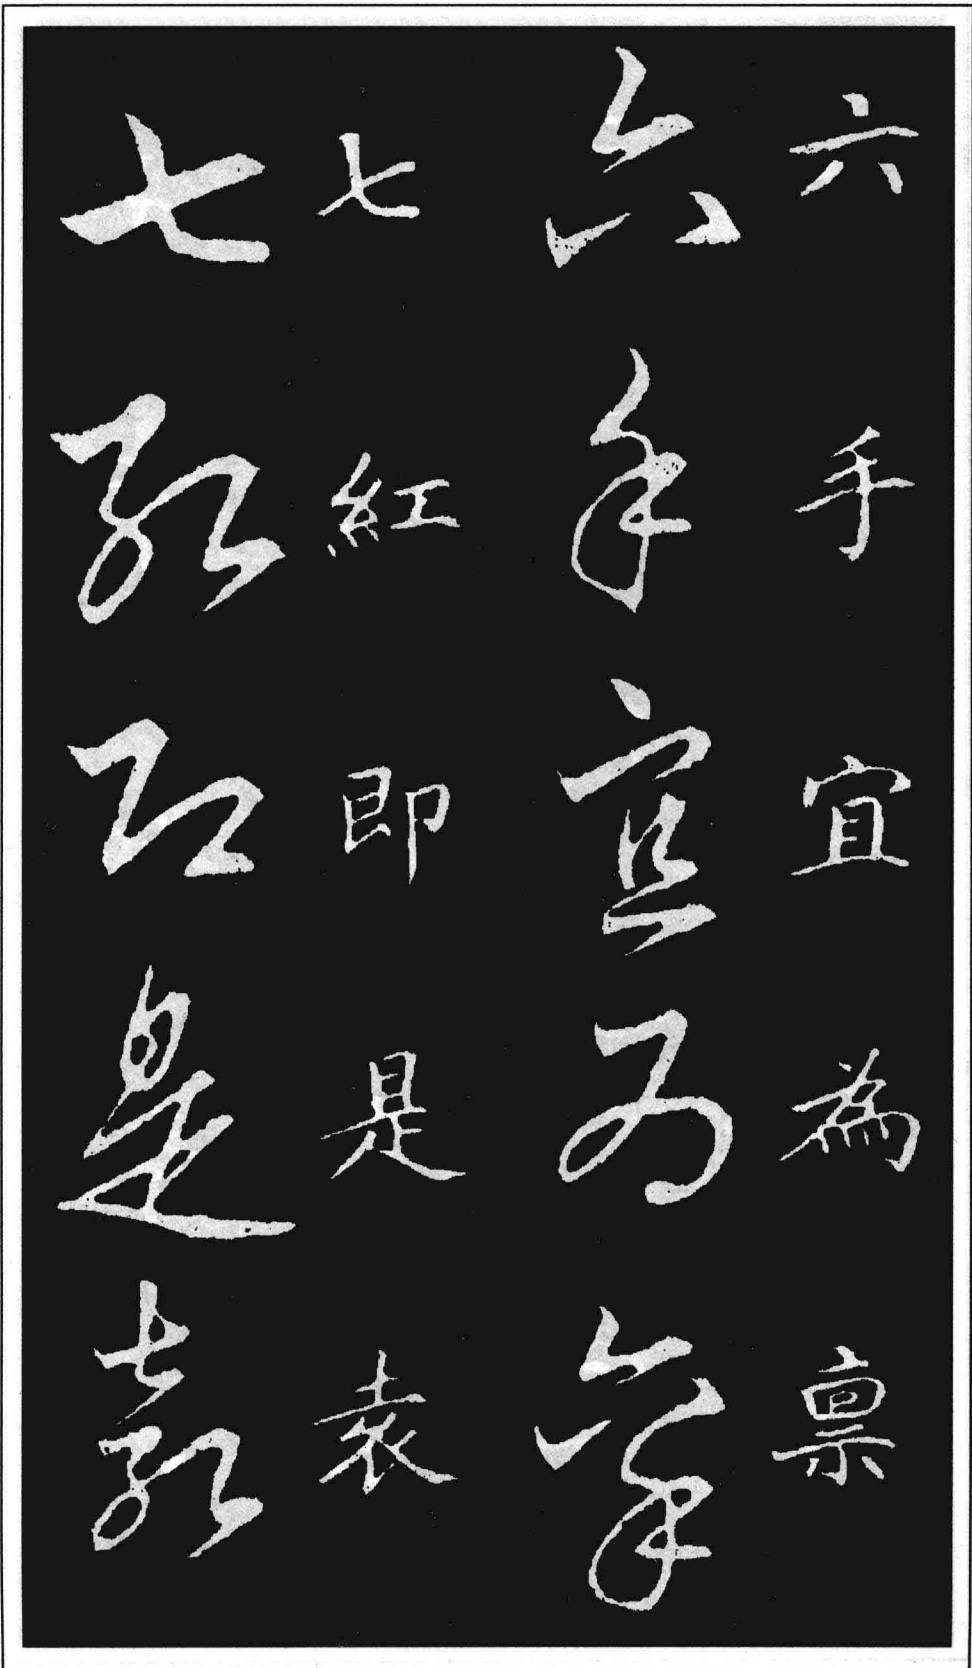 六手宜為禀
六手宜為禀
七紅即是袁
七紅即是袁